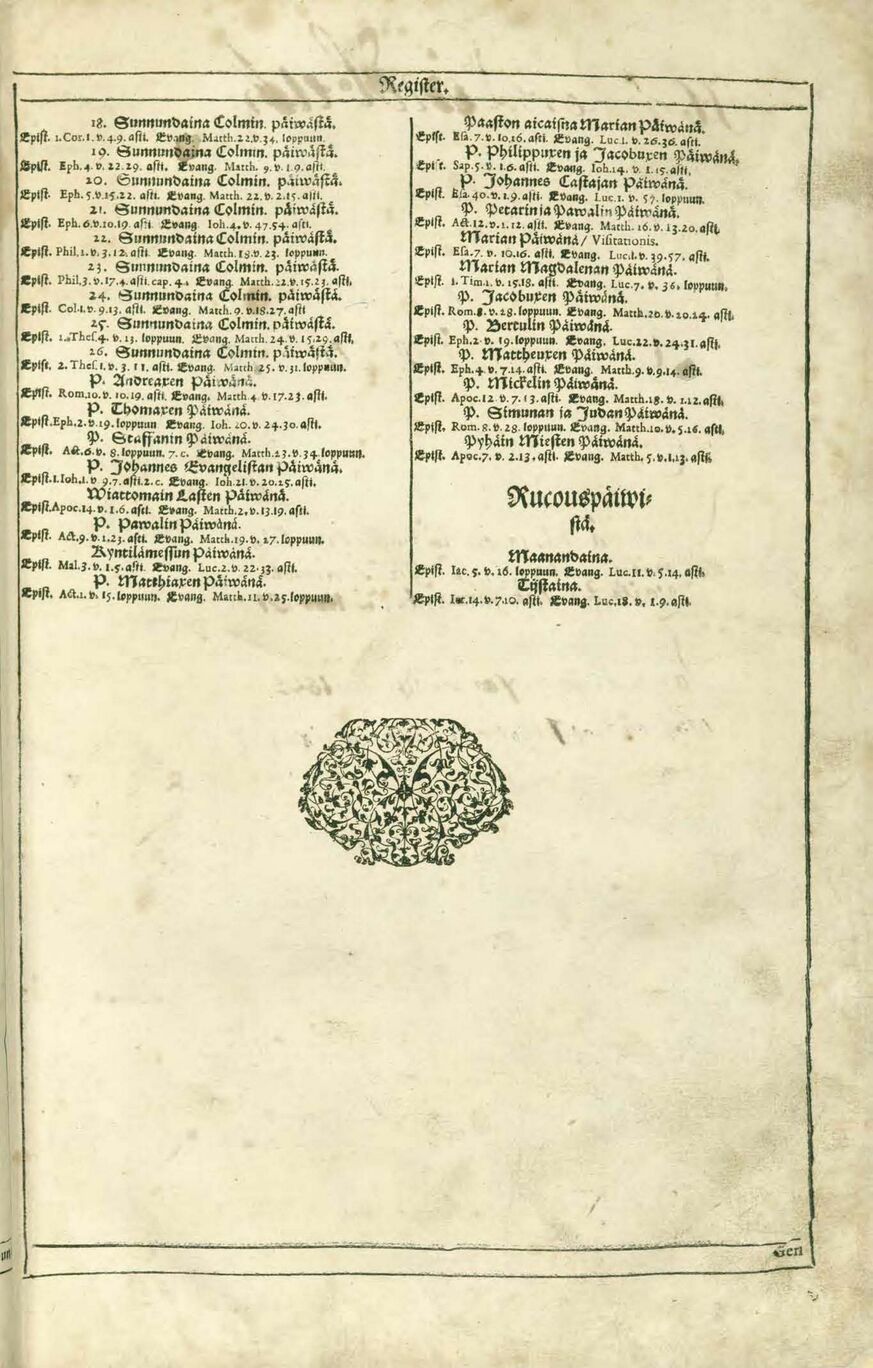 Register.
18. Sunnundaina Colmin. päiwästä.
Epist. 1.Cor.1.v.4.9. asti. Evang. Matth.22.v.34. loppuun.
19. Sunnundaina Colmin. päiwästä.
Epist. Eph.4.v.22.29. asti. Evang. Matth.9.v.1.9. asti.
20. Sunnundaina Colmin. päiwästä.
Epist. Eph.5.v.15.22. asti. Evang. Matth.22.v.2.15. asti.
21. Sunnundaina Colmin. päiwästä.
Epist. Eph.6.v.10.19. asti. Evang. Ioh.4.v.47.54. asti.
22. Sunnundaina Colmin. päiwästä.
Epist. Phil.1.v.3.12. asti. Evang. Matth.18.v.23. loppuun.
23. Sunnundaina Colmin. päiwästä.
Epist. Phil.3.v.17.4. asti. cap.4. Evang. Matth.22.v.15.23. asti.
24. Sunnundaina Colmin. päiwästä.
Epist. Col.1.v.9.13. asti. Evang. Matth.9.v.18.27. asti
25. Sunnundaina Colmin. päiwästä.
Epist. 1.Thes.4.v.13. loppuun. Evang. Matth.24.v.15.29. asti.
26. Sunnundaina Colmin. päiwästä.
Epist. 2.Thes.1.v.3.11. asti. Evang. Matth.25.v.31. loppuun.
P. Andreaxen Päiwänä.
Epist. Rom.10.v.10.19. asti. Evang. Matth.4.v.17.23. asti.
P. Thomaxen Päiwänä.
Epist. Eph.2.v.19. loppuun Evang. Ioh.20.v.24.30. asti.
P. Staffanin Päiwänä.
Epist. Act.6.v.8. loppuun. 7.c. Evang. Matth.23.v.34. loppuun.
P. Johannes Evangelistan Päiwänä.
Epist. 1.Ioh.1.v.9.7. asti. 2.c. Evang. Ioh.21.v.20.25. asti.
Wiattomain Lasten Päiwänä.
Epist. Apoc.14.v.1.6. asti. Evang. Matth.2.v.13.19. asti.
P. Pawalin Päiwänä.
Epist. Act.9.v.1.23. asti. Evang. Matth.19.v.27. loppuun.
Kyntilämessun Päiwänä.
Epist. Mal.3.v.1.5. asti. Evang. Luc.2.v.22.33. asti.
P. Matthiaxen Päiwänä.
Epist. Act.1.v.15. loppuun. Evang. Matth.11.v.25. loppuun.
Paaston aicaisna Marian Päiwänä.
Epist. Esa.7.v.10.16. asti. Evang. Luc.1.v.26.36. asti.
P. Philippuxen ja Jacobuxen Päiwänä.
Epist. Sap.5.v.1.6. asti. Evang. Ioh.14.v.1.15. asti.
P. Johannes Castajan Päiwänä.
Epist. Esa.40.v.1.9. asti. Evang. Luc.1.v.57. loppuun.
P. Petarin ja Pawalin Päiwänä.
Epist. Act.12.v.1.12. asti. Evang. Matth.16.v.13.20. asti.
Marian Päiwänä/ Visitationis.
Epist. Esa.7.v.10.16. asti. Evang. Luc.1.v.39.57. asti.
Marian Magdalenan Päiwänä.
Epist. 1.Tim.1.v.15.18. asti. Evang. Luc.7.v.36. loppuun.
P. Jacobuxen Päiwänä.
Epist. Rom.8.v.28. loppuun. Evang. Matth.20.v.20.24. asti.
P. Bertulin Päiwänä.
Epist. Eph.2.v.19. loppuun. Evang. Luc.22.v.24.31. asti.
P. Mattheuxen Päiwänä.
Epist. Eph.4.v.7.14. asti. Evang. Matth.9.v.9.14. asti.
P. Mickelin Päiwänä.
Epist. Apoc.12.v.7.13. asti. Evang. Matth.18.v.1.12. asti.
P. Simunan ja Judan Päiwänä.
Epist. Rom.8.v.28. loppuun. Evang. Matth.10.v.5.16. asti.
Pyhäin Miesten Päiwänä.
Epist. Apoc.7.v.2.13. asti. Evang. Matth.5.v.1.13. asti.
Rucouspäiwi-
stä.
Maanandaina.
Epist. Iac.5.v.16. loppuun. Evang. Luc.11.v.5.14. asti.
Tijstaina.
Epist. Ier.14.v.7.10. asti. Evang. Luc.18.v.1.9. asti.
Gen